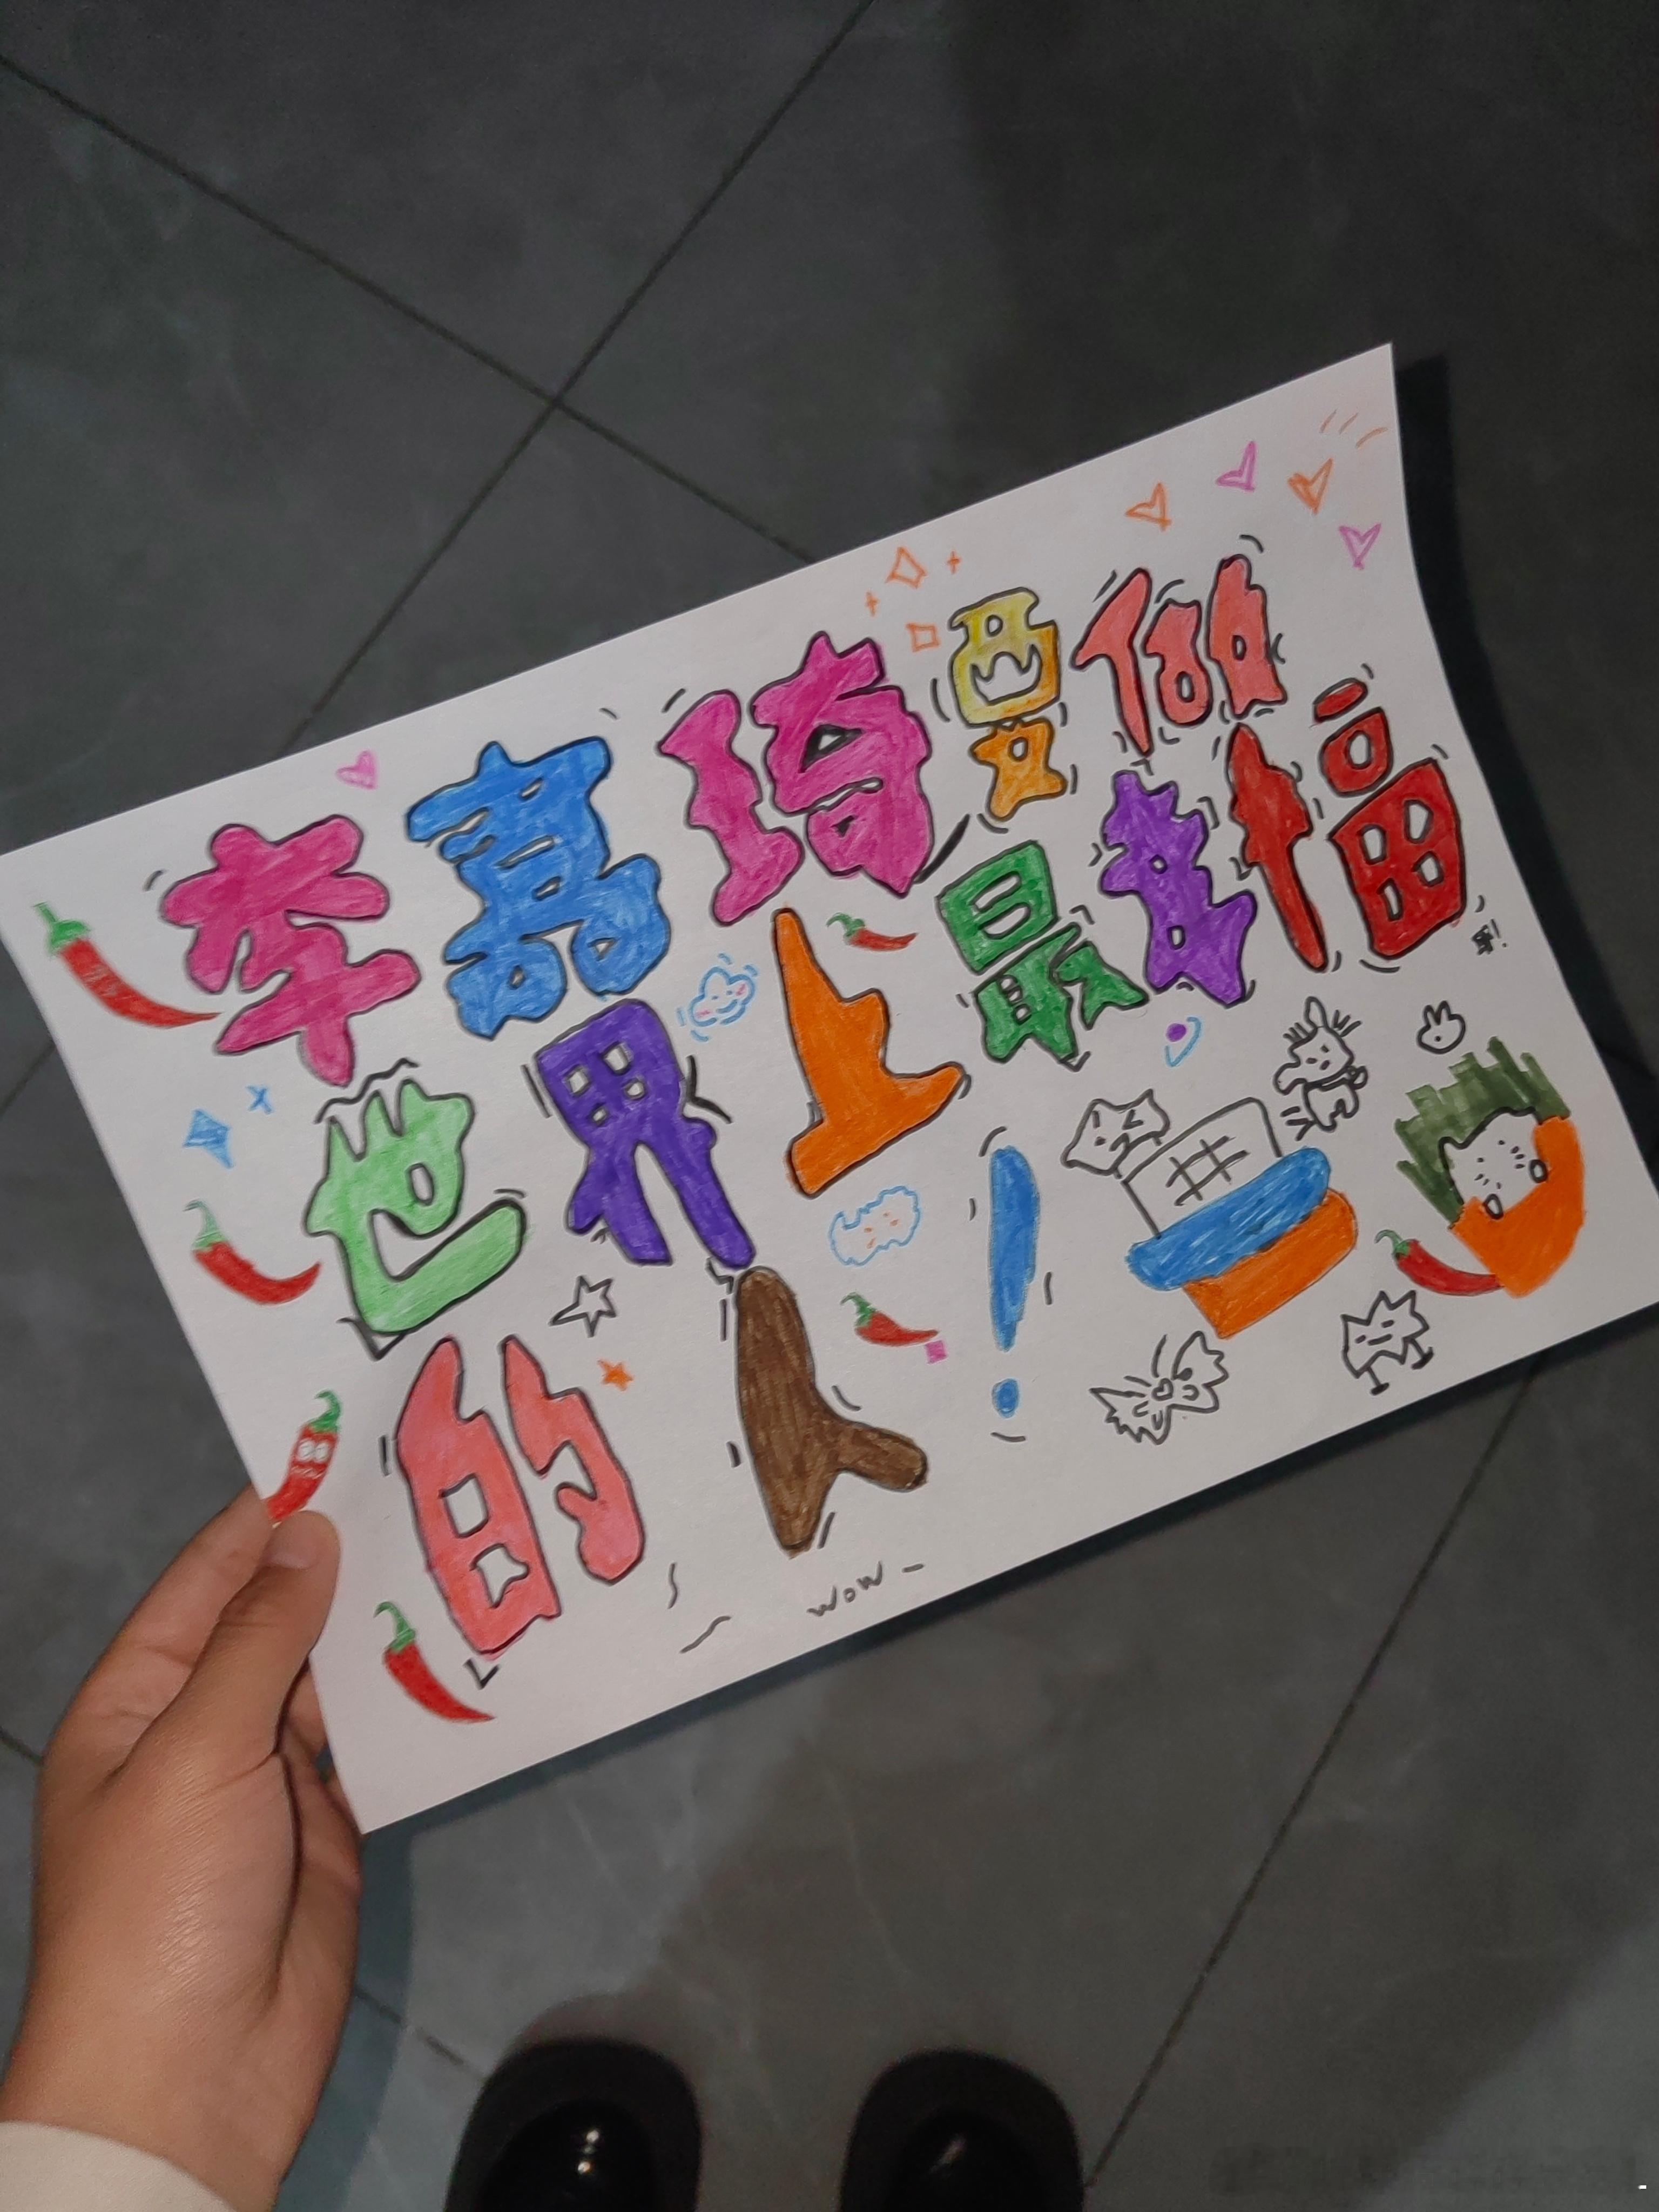 李嘉琦要做
世界上最幸福
的人！
wow –